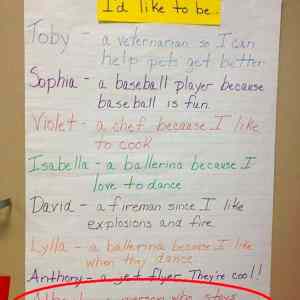 I'd like to be
Toby - a veternarian so I can
help pets get better
Sophia - a baseball player because
baseball is fun.
Violet - a chef because I like
to cook
Isabella - a ballerina because I
love to dance
David - a fireman since I like
explosions and fire
Lylla - a ballerina because I like
when they dance
Anthony - a jet flyer They're cool!
person who